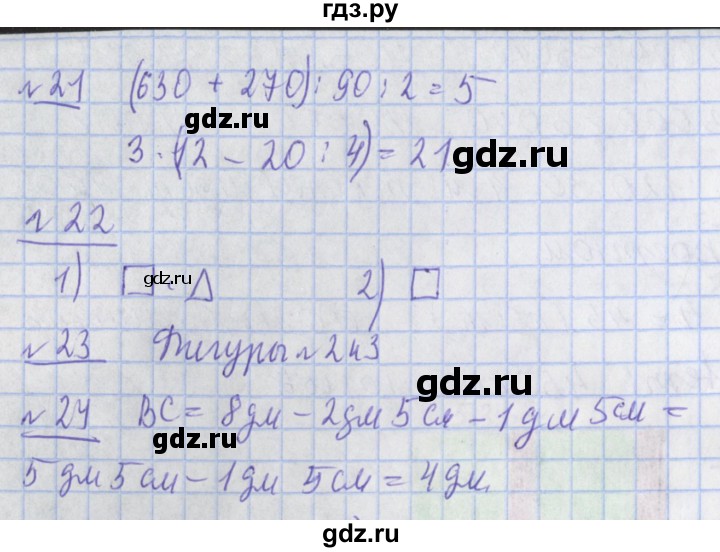 гдз.ру
№21 (630 + 270) : 90 : 2 = 5
gdz.ru
3 · (12 – 20 : 4) = 21
gdz.ru
№22
1) □ gdz.ru △ 2) □
№23 Фигуры №2 и 3
gdz.ru
№24 ВС = 8 дм – 2 дм 5 см – 1 дм 5 см =
5 дм 5 см – 1 дм 5 см = 4 дм.
gdz.ru